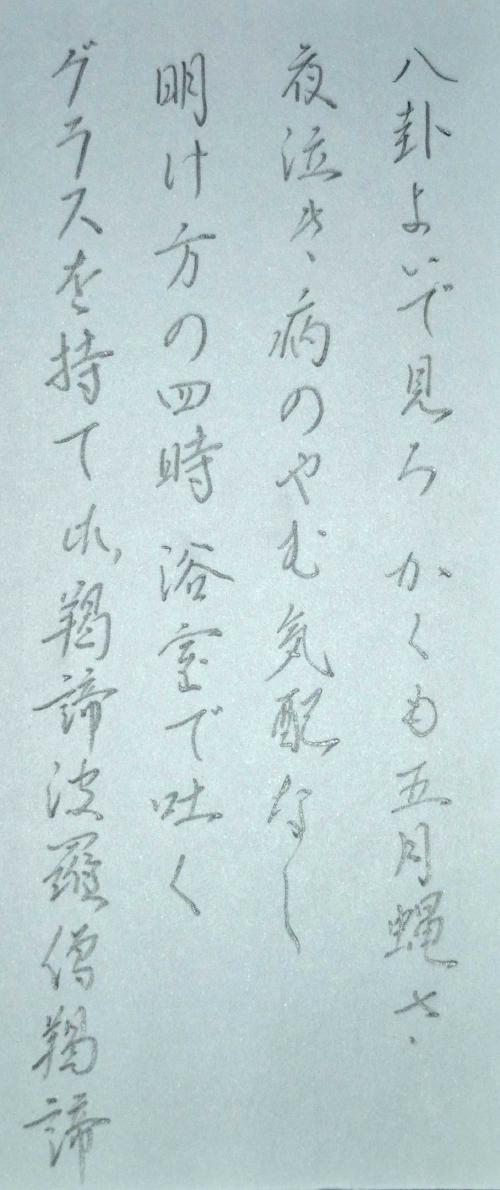 八卦よいで見ろ かくも五月蝿き
夜泣き、病のやむ気配なし
明け方の四時 浴室で吐く
グラスを持て 羯諦波羅僧羯諦